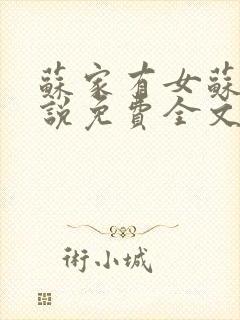 蘇家有女蘇
說免費全文
術小城